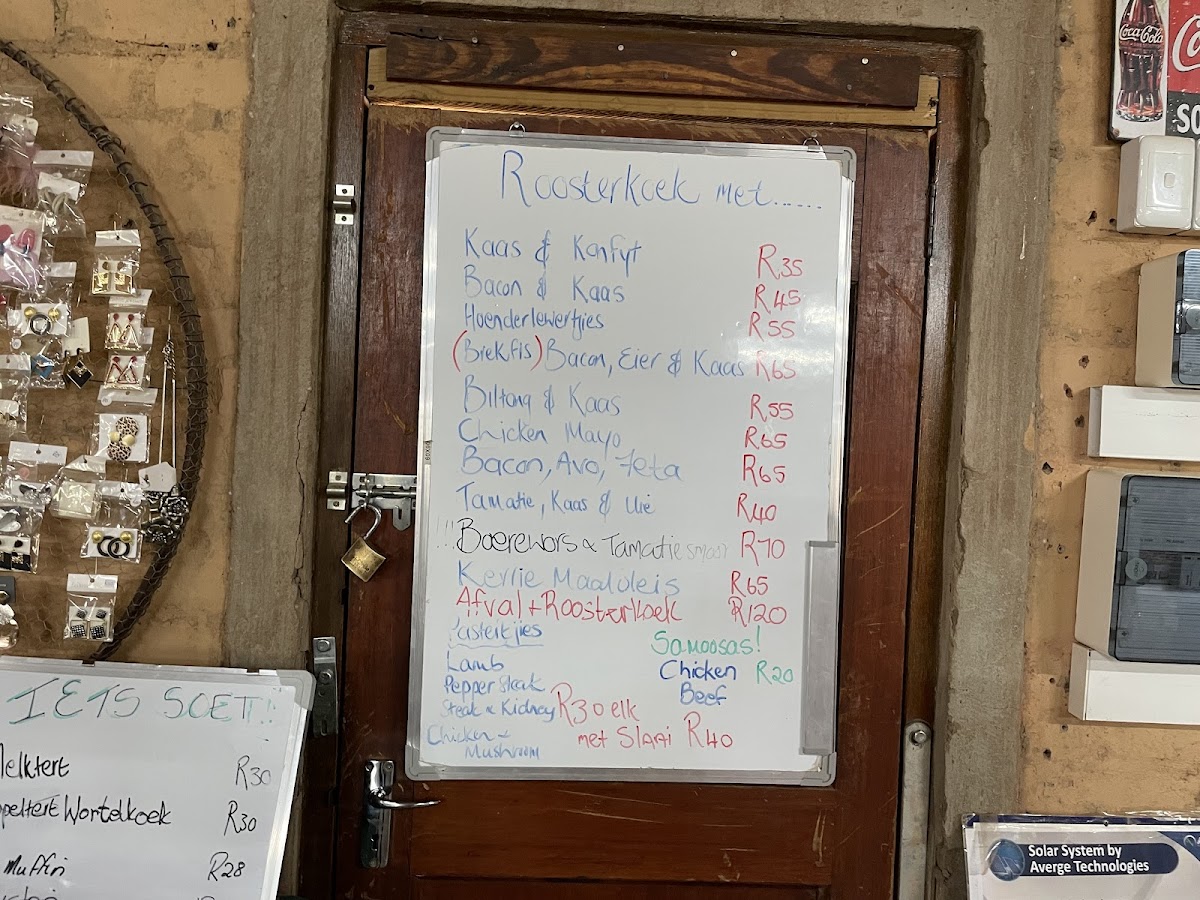 Roosterkoek met......
Kaas & Konfyt R35
Bacon & Kaas R45
Hoenderlewertjies R55
(Brekfis) Bacon, Eier & Kaas R65
Biltong & Kaas R55
Chicken Mayo R65
Bacon, Avo, Feta R65
Tamatie, Kaas & Uie R40
!!! Boerewors & Tamatie smoor R70
Kerrie Maalvleis R65
Afval + Roosterkoek R120
Pasteitjies
Lamb
Pepper Steak
Steak & Kidney
Chicken +
Mushroom
R30 elk
met Slaai R40
Samoosas!
Chicken R20
Beef
IETS SOET!!
Melktert R30
Wortelkoek R30
Muffin R28
Coca-Cola
Solar System by
Averge Technologies